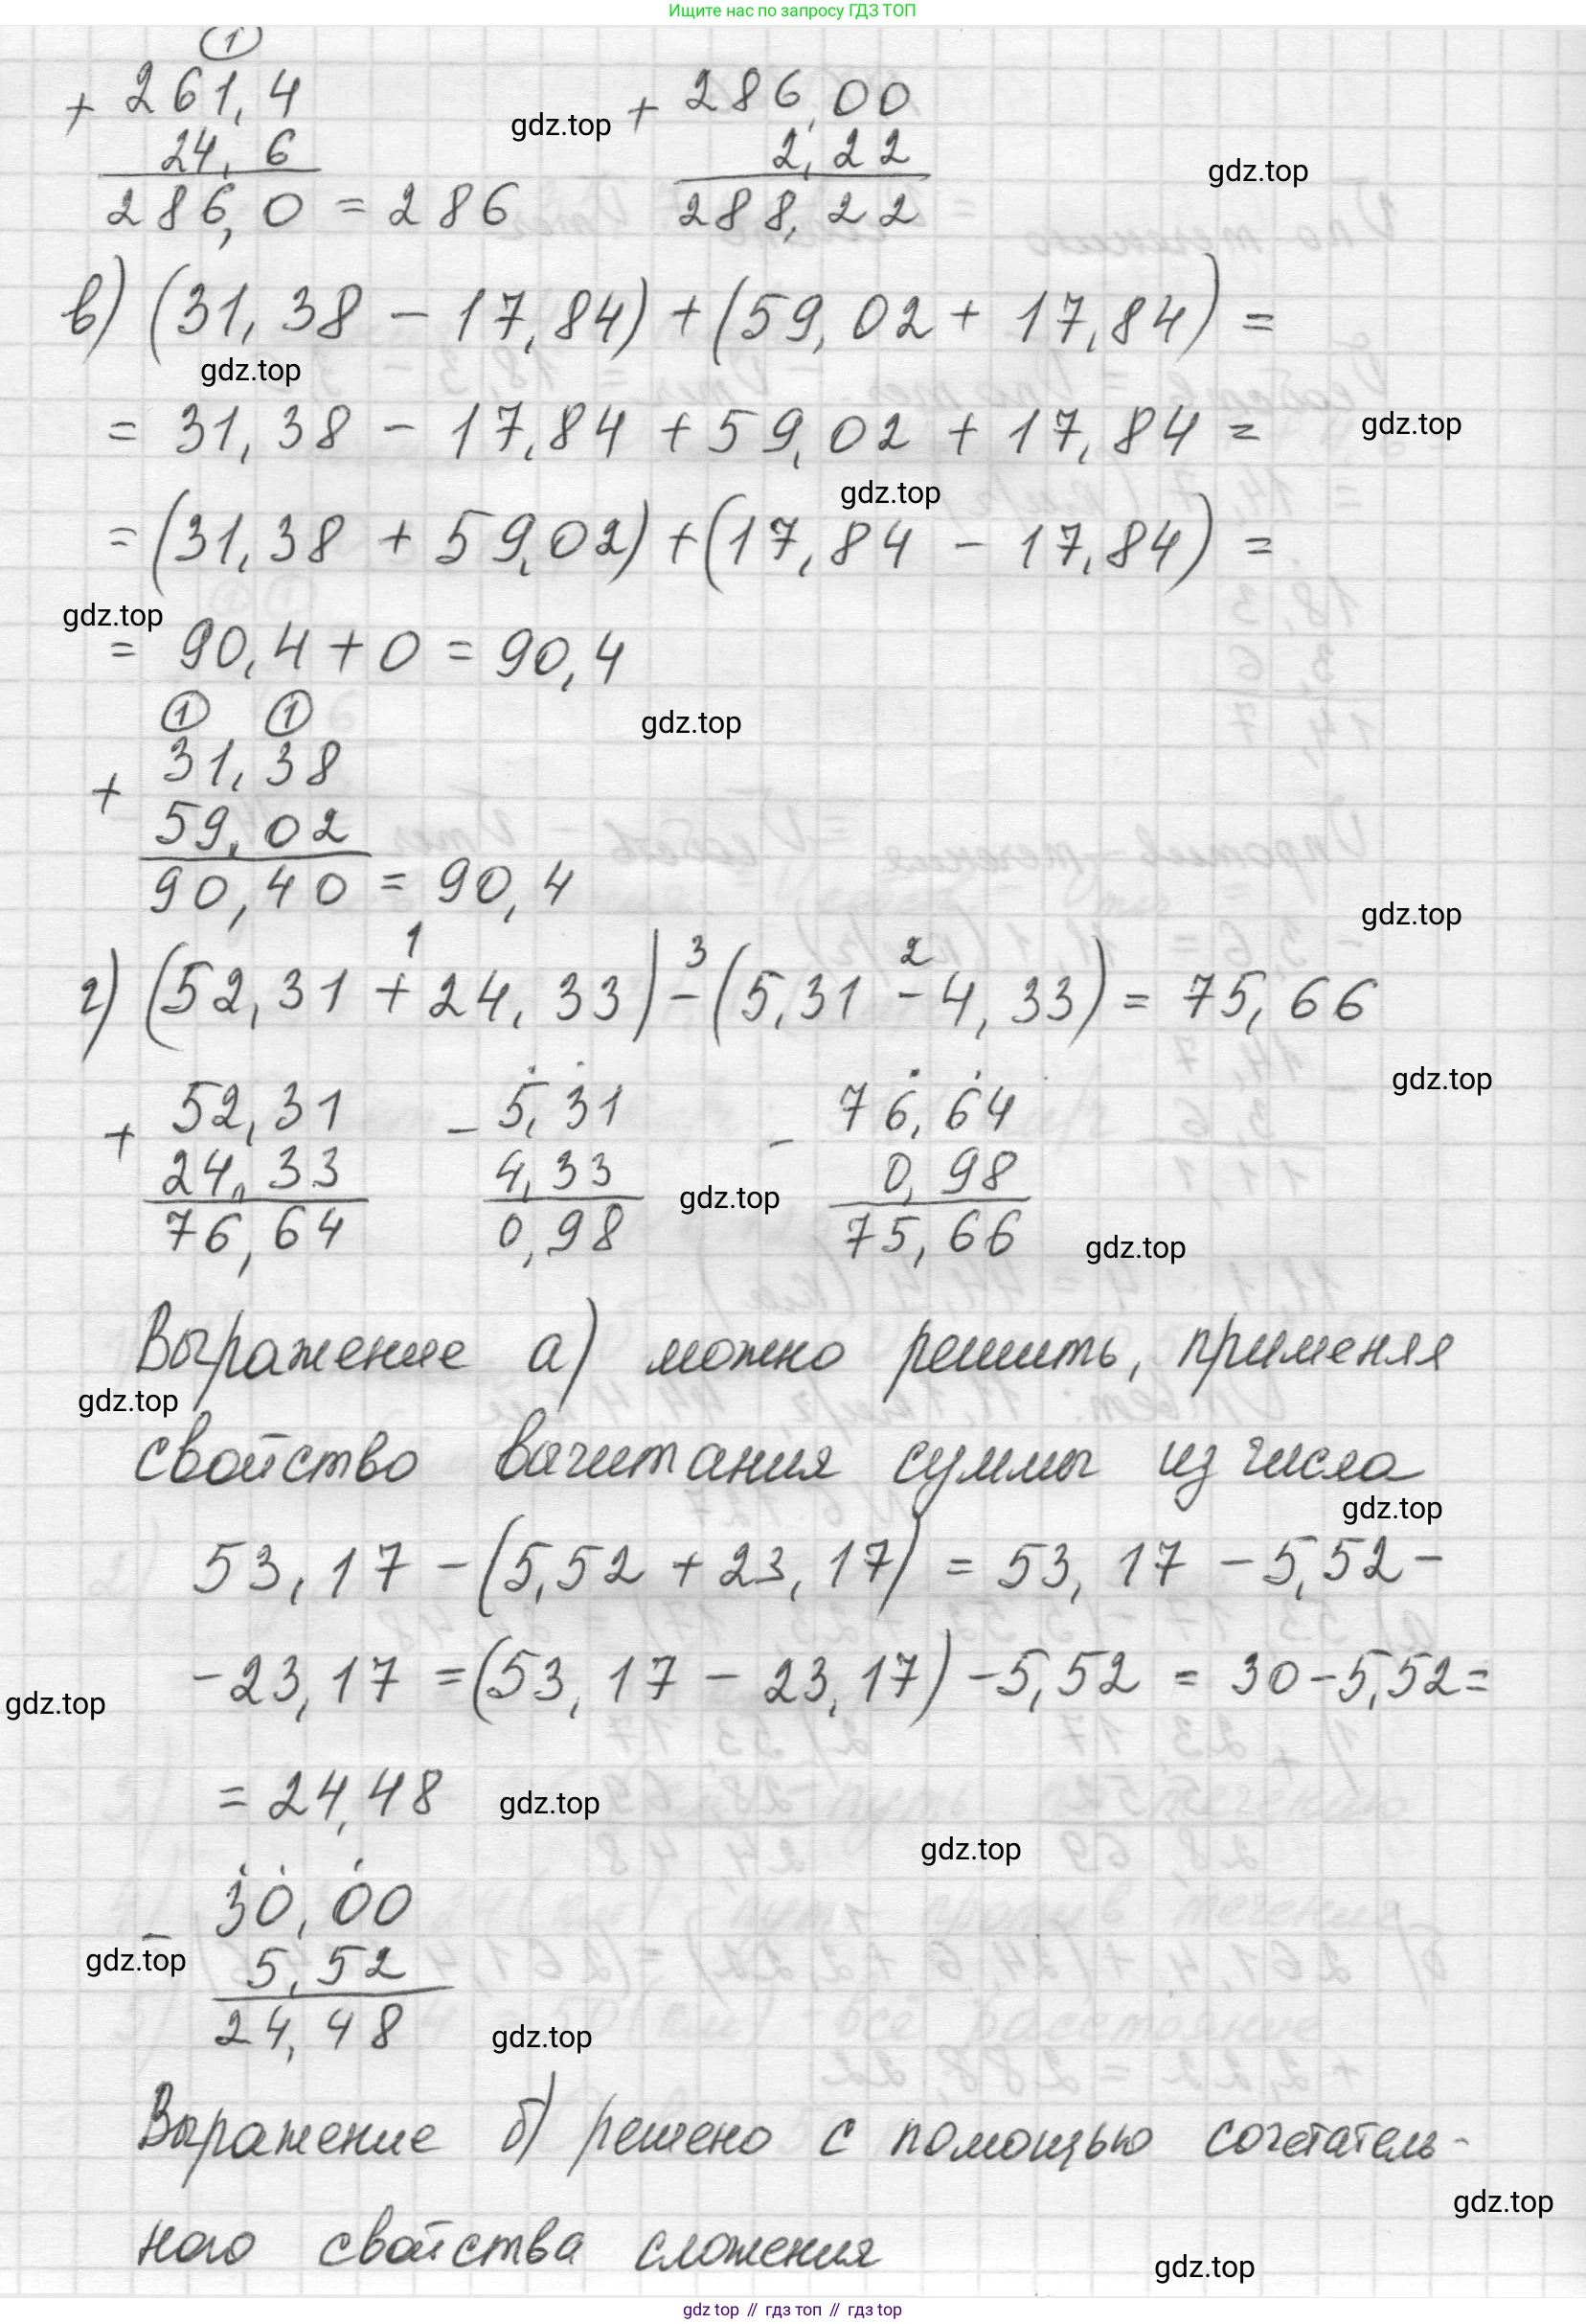 Ищите нас по запросу ГДЗ ТОП
1
+ 261,4
24,6
286,0 = 286
gdz.top
+ 286,00
2,22
288,22
gdz.top
в) (31,38 - 17,84) + (59,02 + 17,84) =
gdz.top
= 31,38 - 17,84 + 59,02 + 17,84 =
gdz.top
gdz.top
= (31,38 + 59,02) + (17,84 - 17,84) =
gdz.top
= 90,4 + 0 = 90,4
gdz.top
1 1
+ 31,38
59,02
90,40 = 90,4
gdz.top
1 3 2
г) (52,31 + 24,33) - (5,31 - 4,33) = 75,66
gdz.top
+ 52,31
24,33
76,64
- 5,31
4,33
0,98
gdz.top
- 76,64
0,98
75,66
gdz.top
Выражение а) можно решить, применяя
gdz.top
свойство вычитания суммы из числа
gdz.top
53,17 - (5,52 + 23,17) = 53,17 - 5,52 -
- 23,17 = (53,17 - 23,17) - 5,52 = 30 - 5,52 =
gdz.top
= 24,48
gdz.top
gdz.top
- 30,00
5,52
24,48
gdz.top
gdz.top
Выражение б) решено с помощью сочетатель-
gdz.top
ного свойства сложения
gdz.top
gdz top // гдз топ // гдз top